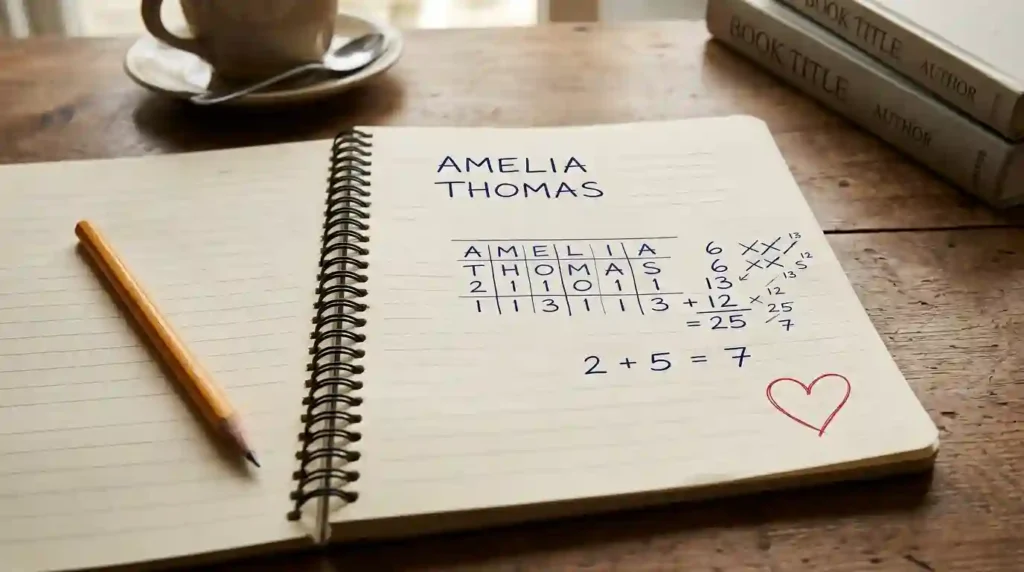 BOOK TITLE AUTHOR
BOOK TITLE AUTHOR
AMELIA
THOMAS
A M E L I A
T H O M A S
2 1 1 0 1 1
1 1 3 1 1 3
6 XX/13
6 XX/5 12
13 /13
+ 12 × 12
= 25 25
/7
2 + 5 = 7